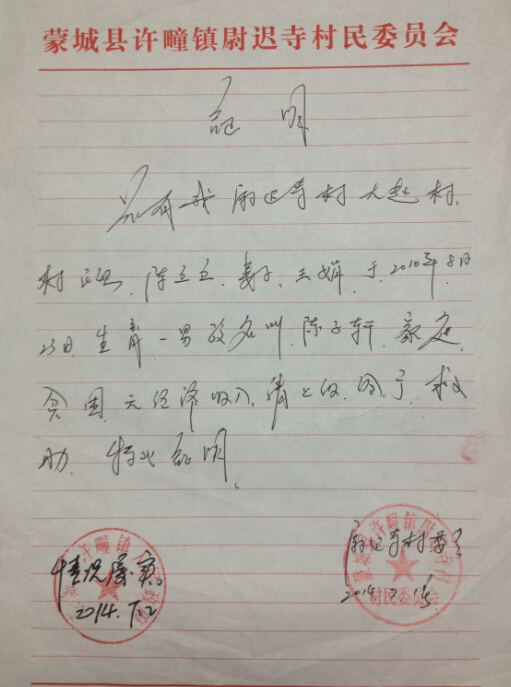 蒙城县许疃镇尉迟寺村民委员会
证明
兹有我尉迟寺村大赵村
村民 陈立立 妻子 王娟 于2010年8月
23日 生育一男孩名叫 陈子轩 家庭
贫困 无经济收入 请上级 给予 救
助 特此证明
情况属实
2014.
尉迟寺村委会
2014
村民委员会